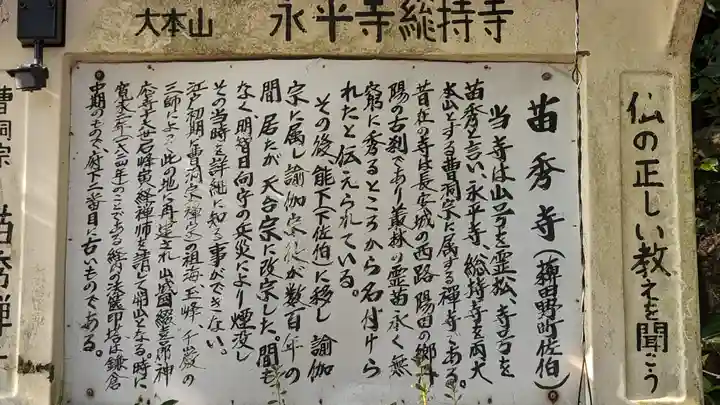 大本山 永平寺總持寺
仏の正しい教えを聞こう
苗秀寺（薭田野町佐伯）
当寺は山号を霊松、寺号を
苗秀と言い、永平寺、総持寺を両大
本山とする曹洞宗に属する禅寺である。
昔在の寺は長安城の西路 陽田の郷
陽の古刹であり叢林の霊苗永く無
窮に秀るところから名付けら
れたと伝えられている。
その後、能下下佐伯に移し 諭伽
宗に属し諭伽宗徒が数百年の
間居たが天台宗に改宗した。間も
なく、明智日向守の兵災により煙没し
その当時を詳細に知る事ができない。
江戸初期に曹洞宗禅定の祖海、玉峰、千巌の
三師によって此の地に再建され
応寺十六世石峰寅経禅師を請して開山となる。時に
寛永二年一六二四年のことである 境内の法篋印塔は鎌倉
中期のもので、府下二番目に古いものである。
曹洞宗 苗秀禅寺